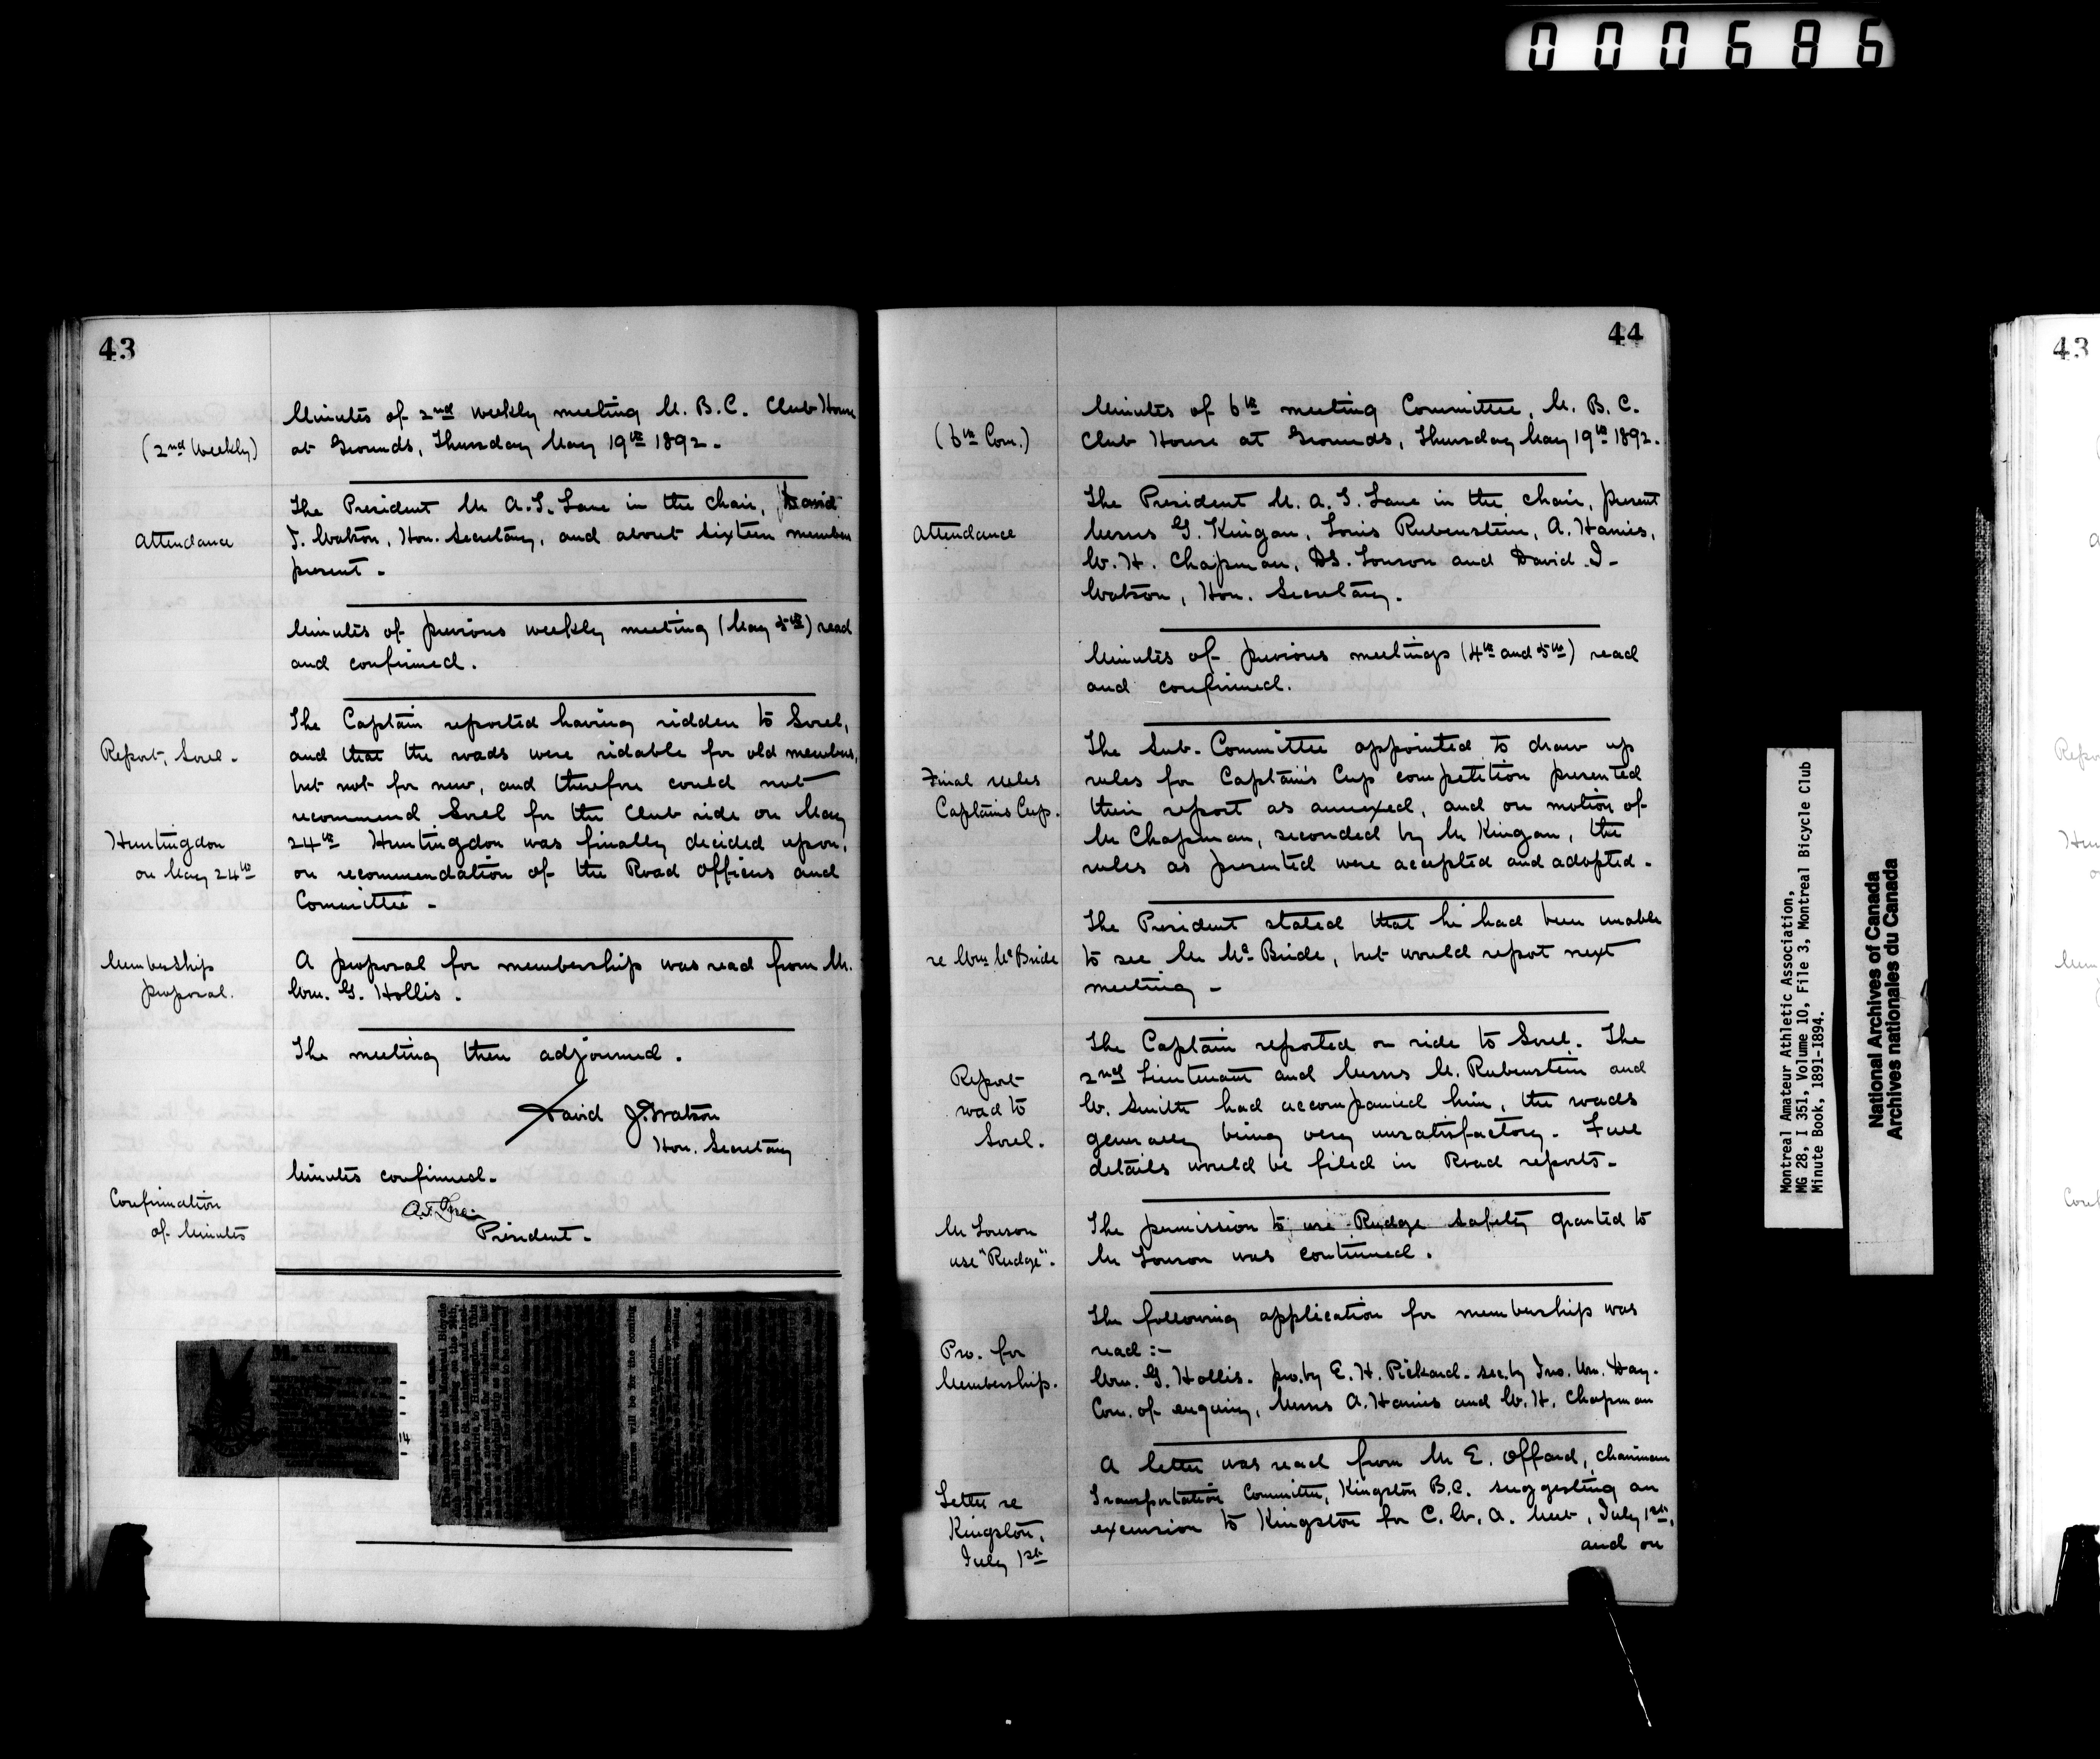 000686
43
(2nd Weekly)
Minutes of 2nd weekly meeting M. B. C. Club House
at Grounds, Thursday May 19th 1892.
Attendance
The President Mr A. T. Lane in the chair, David
J. Watson, Hon. Secretary, and about sixteen members
present.
Minutes of previous weekly meeting (May 5th) read
and confirmed.
Report, Sorel.
The Captain reported having ridden to Sorel,
and that the roads were ridable for old members,
but not for new, and therefore could not
recommend Sorel for the Club ride on May
Huntingdon
on May 24th
24th Huntingdon was finally decided upon,
on recommendation of the Road Officers and
Committee.
Membership
proposal.
A proposal for membership was read from Mr.
Wm. G. Hollis.
The meeting then adjourned.
David J. Watson
Hon. Secretary
Minutes confirmed.
Confirmation
of Minutes
A. T. Lane
President.
M. B.C. FIXTURES
14
44
(6th Com.)
Minutes of 6th meeting Committee, M. B. C.
Club House at Grounds, Thursday May 19th 1892.
Attendance
The President Mr. A. T. Lane in the chair, present
Messrs G. Kingan, Louis Rubenstein, A. Harries,
W. H. Chapman, DS. Louson and David J.
Watson, Hon. Secretary.
Minutes of previous meetings (4th and 5th) read
and confirmed.
Final rules
Captains Cup.
The Sub-Committee appointed to draw up
rules for Captain's Cup competition presented
their report as annexed, and on motion of
Mr Chapman, seconded by Mr Kingan, the
rules as presented were accepted and adopted.
re Wm McBride
The President stated that he had been unable
to see Mr McBride, but would report next
meeting.
Report
road to
Sorel.
The Captain reported on ride to Sorel. The
2nd Lieutenant and Messrs M. Rubenstein and
W. Smith had accompanied him, the roads
generally being very unsatisfactory. Full
details would be filed in Road reports.
Mr Louson
use "Rudge".
The permission to use Rudge Safety granted to
Mr Louson was continued.
Pro. for
Membership.
The following application for membership was
read :-
Wm. G. Hollis. pro. by E. H. Pickard. sec. by Jno. Wm. Day.
Com. of enquiry, Messrs A. Harries and W. H. Chapman
Letter re
Kingston,
July 1st
A letter was read from Mr E. Offord, chairman
Transportation Committee, Kingston B.C. suggesting an
excursion to Kingston for C. W. A. Meet, July 1st,
and on
Montreal Amateur Athletic Association,
MG 28, I 351, Volume 10, File 3, Montreal Bicycle Club
Minute Book, 1891-1894.
National Archives of Canada
Archives nationales du Canada
43